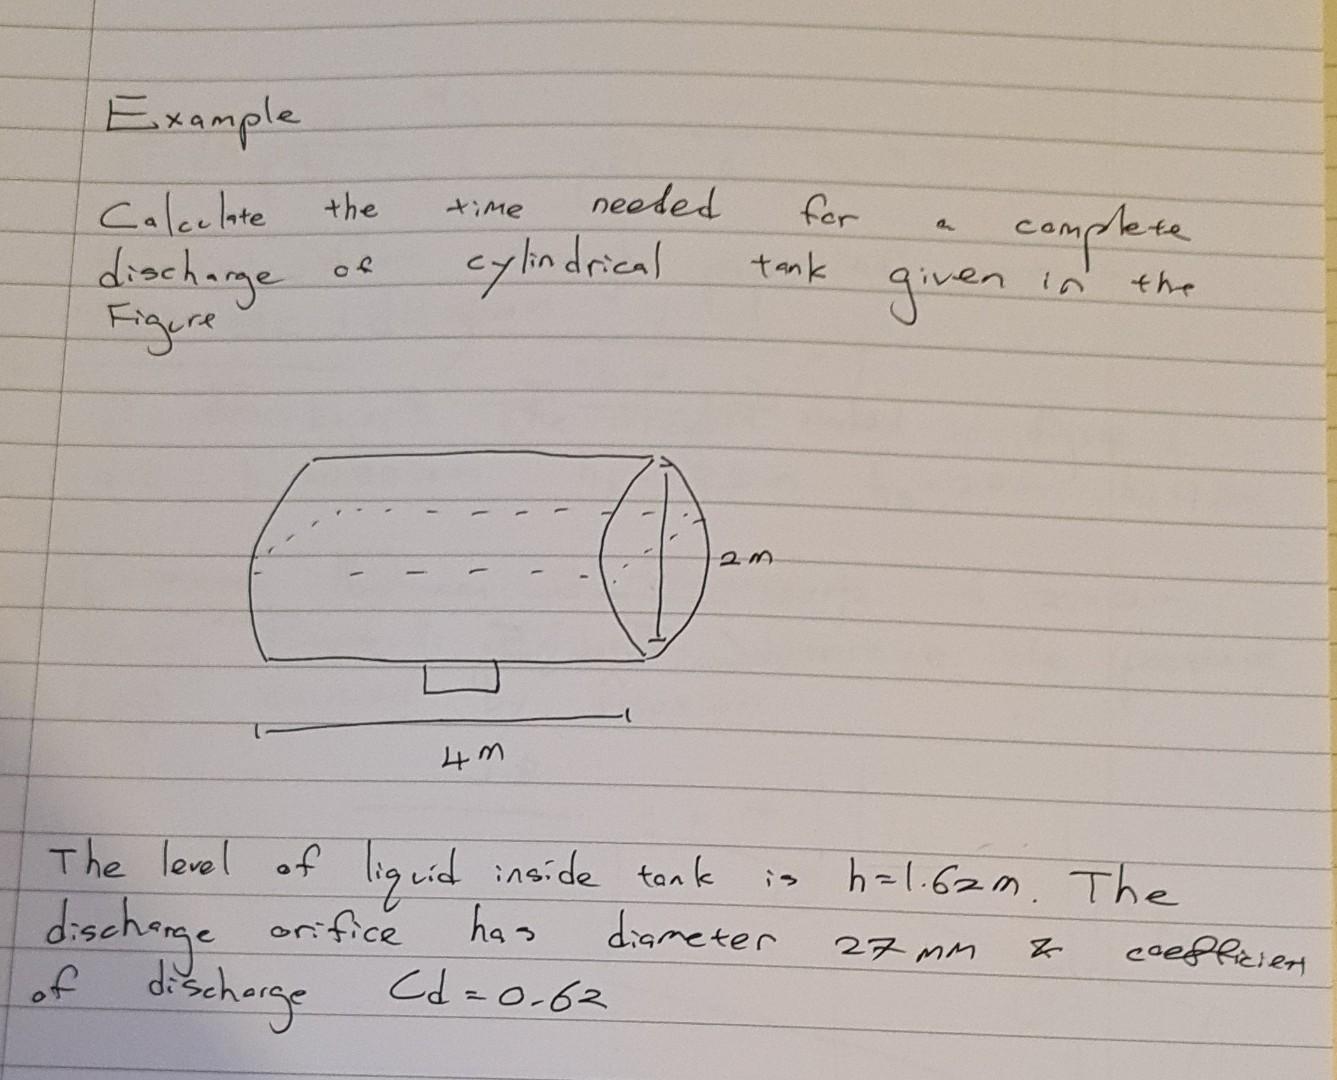 Example
Calculate the time needed for a complete
discharge of cylindrical tank given in the
Figure
2m
4m
The level of liquid inside tank is h=1.62m. The
discharge orifice has diameter 27mm & coefficient
of discharge Cd=0.62